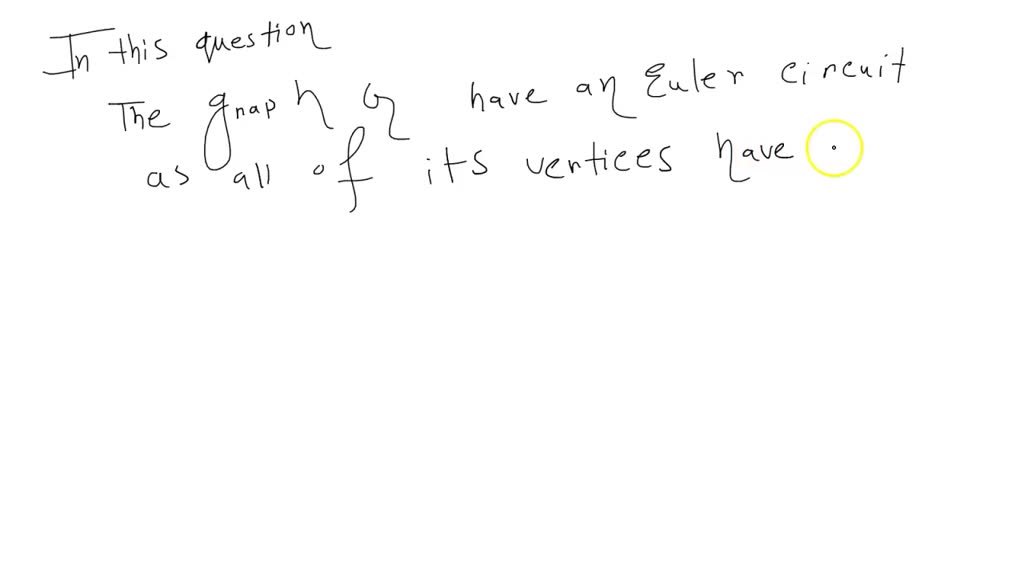 In this question
The graph G have an Euler circuit
as all of its vertices have